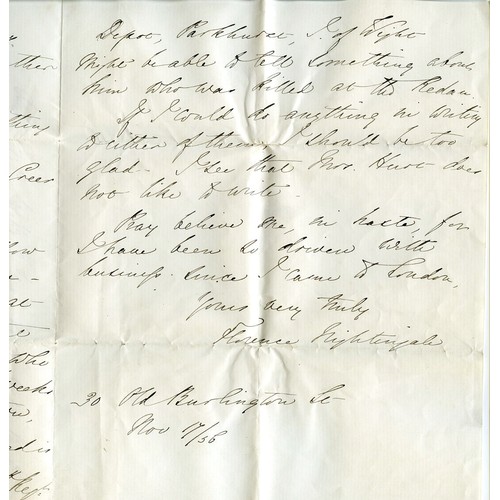 Depot, Parkhurst, I. of Wight
might be able to tell something about
him who was killed at the Redan.
If I could do anything in writing
to either of them, I should be too
glad - I see that Mrs. Hurt does
not like to write -
Pray believe me, in haste, for
I have been so driven with
business since I came to London,
Yours very truly
Florence Nightingale
30 Old Burlington St
Nov 17/56
ither
tting
Creer
low
at
who
weeks